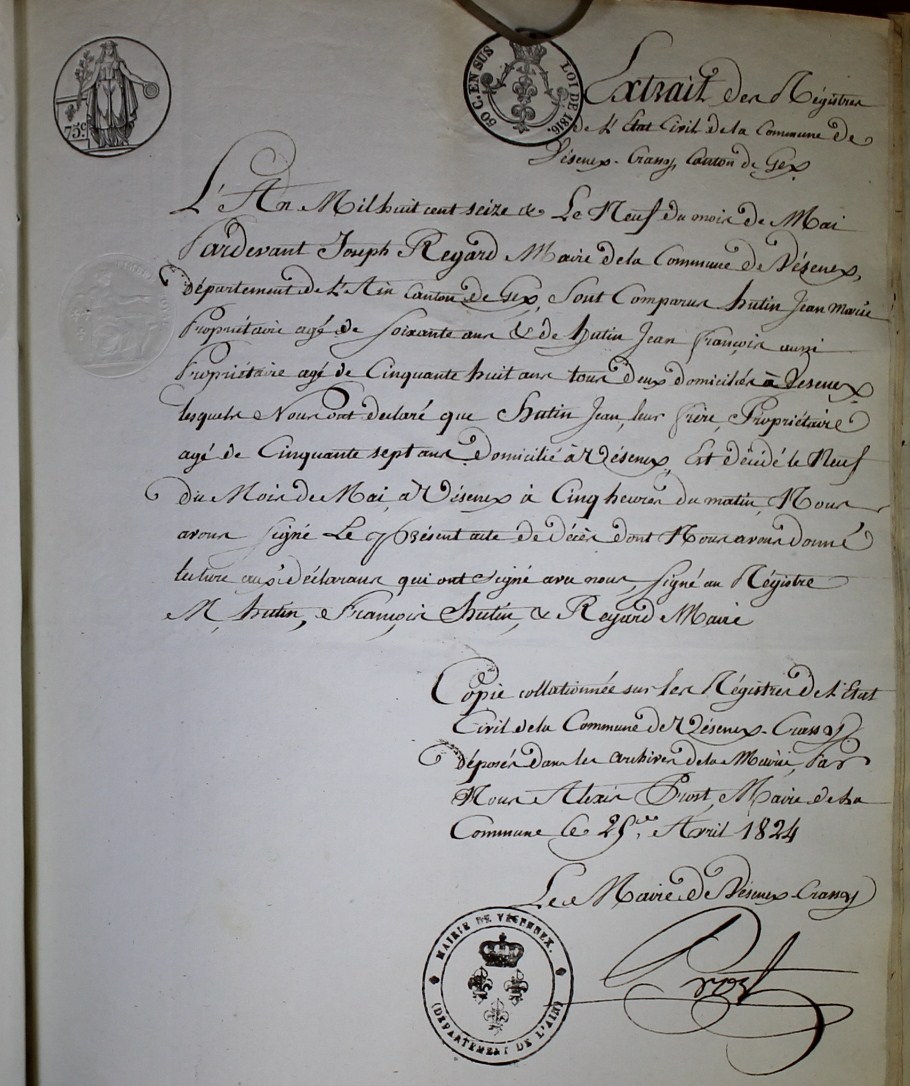 75c
50 C. EN SUS LOI DE 1816.
Extrait des Régistres
de L'Etat Civil de la Commune de
Vésenex-Crassy, Canton de Gex
L'An Mil huit cent seize & Le Neuf du mois de Mai
Pardevant Joseph Regard Maire de la Commune de Vésenex,
Département de L'Ain Canton de Gex, Sont Comparus hutin Jean Marie
Propriétaire agé de Soixante ans & de hutin Jean françois aussi
Propriétaire agé de Cinquante huit ans tous deux domiciliés à Vesenex
lesquels Nous ont declaré que Hutin Jean, leur frère, Propriétaire
agé de Cinquante sept ans, Domicilié à Vésenex, Est décédé le Neuf
du Mois de Mai, à Vésenex à Cinq heures du matin, Nous
avons signé Le Présent acte de décès dont Nous avons donné
lecture aux déclarans qui ont signé avec nous, Signé au Régistre
M, hutin, François Hutin, & Regard Maire
Copie collationnée sur les Régistres de l'Etat
Civil de la Commune de Vésenex-Crassy
déposés dans les archives de la Mairie, Par
Nous Alexis Prost, Maire de la
Commune le 25 Avril 1824
Le Maire de Vésenex-Crassy
Prost
MAIRIE DE VESENNEX.
(DÉPARTEMENT DE L'AIN)